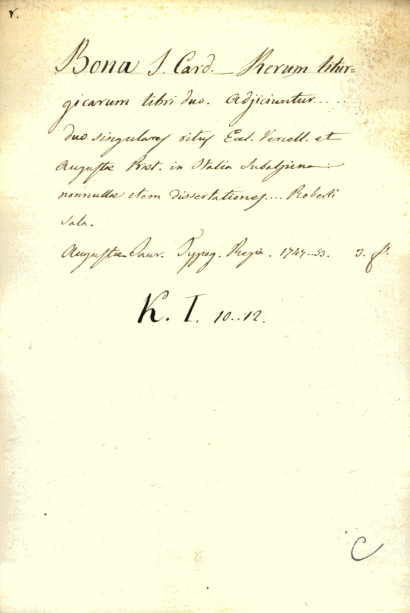 v.
Bona J. Card. — Rerum litur=
gicarum libri duo. Adjiciuntur.....
duo singulares ritus Eccl. Vercell. et
Augustæ Præt. in Italia Subalpina —
nonnullæ item dissertationes.... Roberti
Sala.
Augustæ Taur. Typog. Regia. 1747..53. 3. f.º
K. I. 10..12.
C